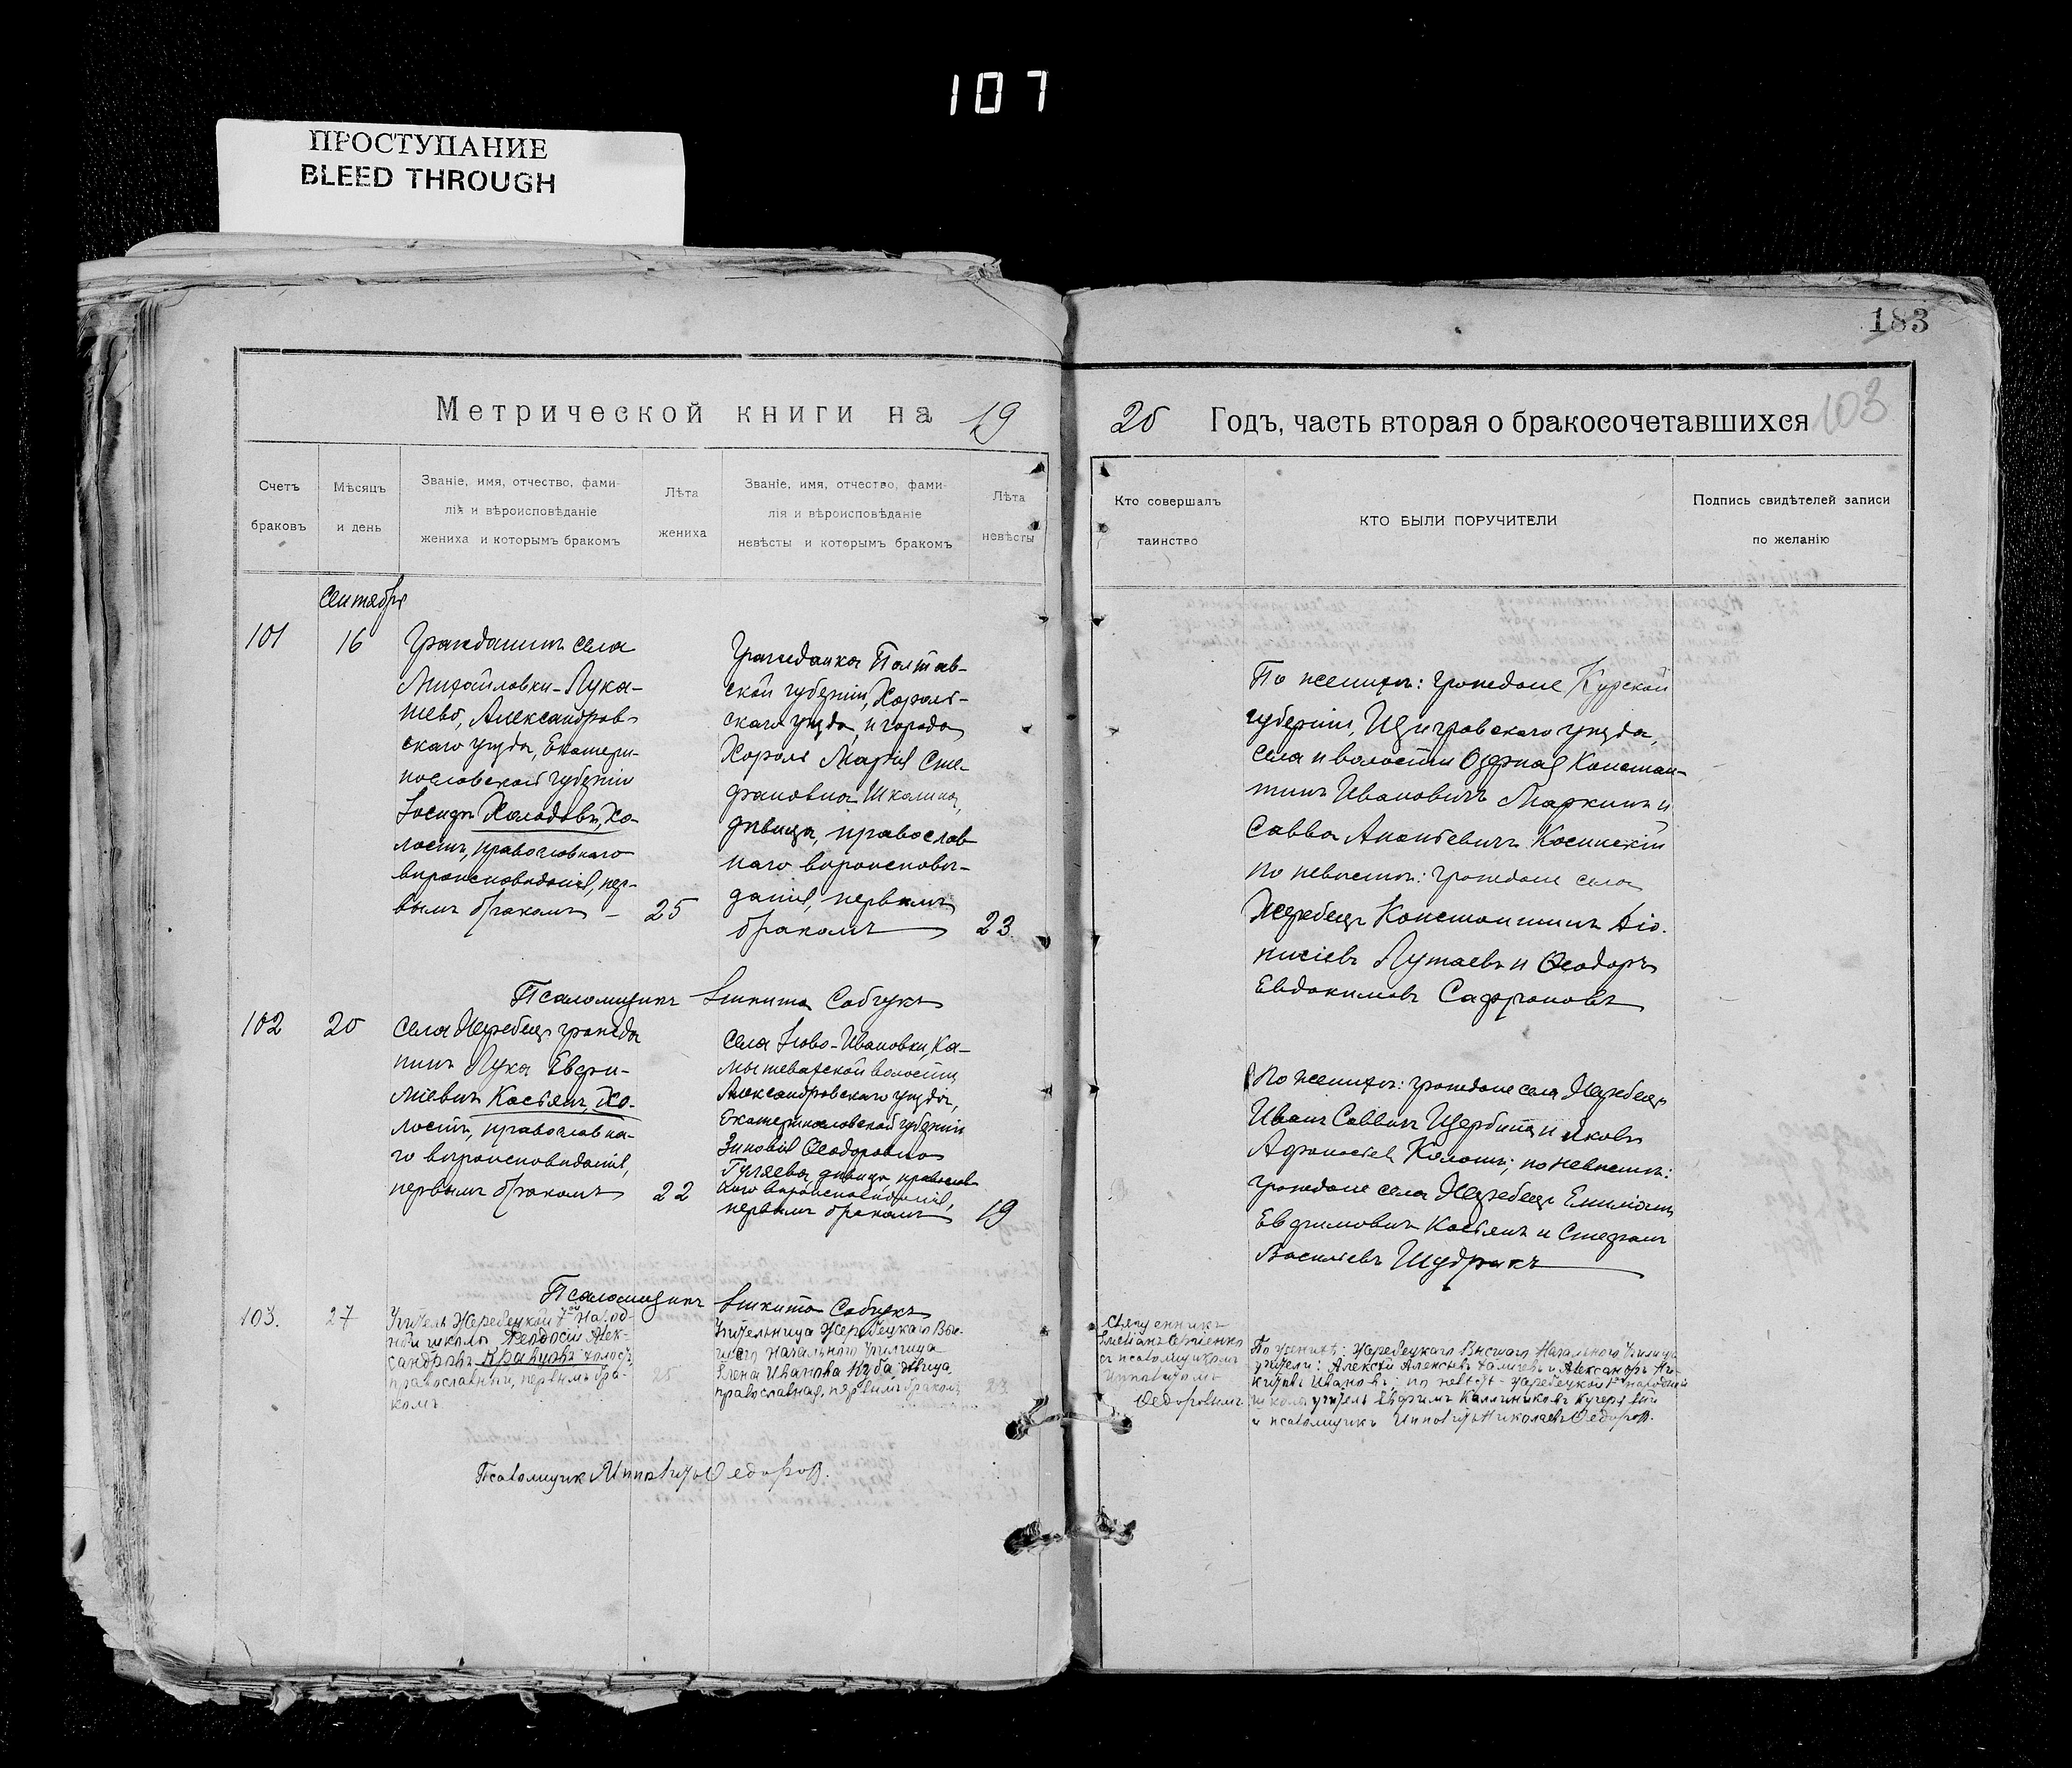 107
ПРОСТУПАНИЕ
BLEED THROUGH
183
103
Метрической книги на 19
20 Годъ, часть вторая о бракосочетавшихся
Счетъ
браковъ
Мѣсяцъ
и день
Званіе, имя, отчество, фами-
лія и вѣроисповѣданіе
жениха и которымъ бракомъ
Лѣта
жениха
Званіе, имя, отчество, фами-
лія и вѣроисповѣданіе
невѣсты и которымъ бракомъ
Лѣта
невѣсты
Кто совершалъ
таинство
КТО БЫЛИ ПОРУЧИТЕЛИ
Подпись свидѣтелей записи
по желанію
Сентября
101
16
Гражданинъ села
Михайловки-Лука-
шево, Александров-
скаго уѣзда, Екатери-
нославской губерніи
Іосифъ Холодовъ, хо-
лостъ, православнаго
вѣроисповѣданія, пер-
вымъ бракомъ –
25
Гражданка Полтав-
ской губерніи, Хороль-
скаго уѣзда, и города
Хороля Марія Сте-
фановна Шкалина,
дѣвица, православ
наго вѣроисповѣ-
данія, первымъ
бракомъ
23.
По женихѣ: граждане Курской
губерніи, Щигровскаго уѣзда,
села и волости Озерная Констан-
тинъ Ивановичъ Маркинъ и
Савва Ананьевичъ Косинскій
по невѣстѣ: граждане села
Жеребецъ Константинъ Діо-
нисіевъ Лутаевъ и Ѳеодоръ
Евдокимовъ Сафроновъ
Псаломщикъ Никита Собчукъ
102
20
Села Жеребецъ гражда
нинъ Лука Евфи-
міевичъ Касьянъ, хо-
лостъ, православна-
го вѣроисповѣданія,
первымъ бракомъ
22
Села Ново-Ивановки, Ка-
мышевахской волости
Александровскаго уѣзда,
Екатеринославской губерніи
Зиновія Ѳеодоровна
Гуляева, дѣвица, православ
наго вѣроисповѣданія,
первымъ бракомъ
19
По женихѣ: граждане села Жеребецъ
Иванъ Саввинъ Щербина и Яковъ
Афанасьевъ Колотъ; по невѣстѣ:
граждане села Жеребецъ Емиліанъ
Евфимовичъ Касьянъ и Стефанъ
Васильевъ Шудрикъ
Псаломщикъ Никита Собчукъ
103.
27
Учитель Жеребецкой 1й Народ-
ной школы Ѳеодосій Алек-
сандровъ Кравцовъ холостъ,
православный, первымъ бра-
комъ
25
Учительница Жеребецкаго Выс-
шаго Начальнаго Училища
Елена Иванова Куба, дѣвица,
православная, первымъ бракомъ
23.
Священникъ
съ псаломщикомъ
Ипполитомъ
Ѳедоровымъ
По женихѣ: Жеребецкаго Высшаго Начальнаго Училища
учители: Алексѣй Алексѣевъ Халичевъ и Александръ Ни-
китовъ Ивановъ; по невѣстѣ – Жеребецкой 1й народной
школы учитель Евфимъ Каллиниковъ Кучерявый
и псаломщикъ Ипполитъ Николаевъ Ѳедоровъ.
Псаломщик Ипполитъ Ѳедоровъ.